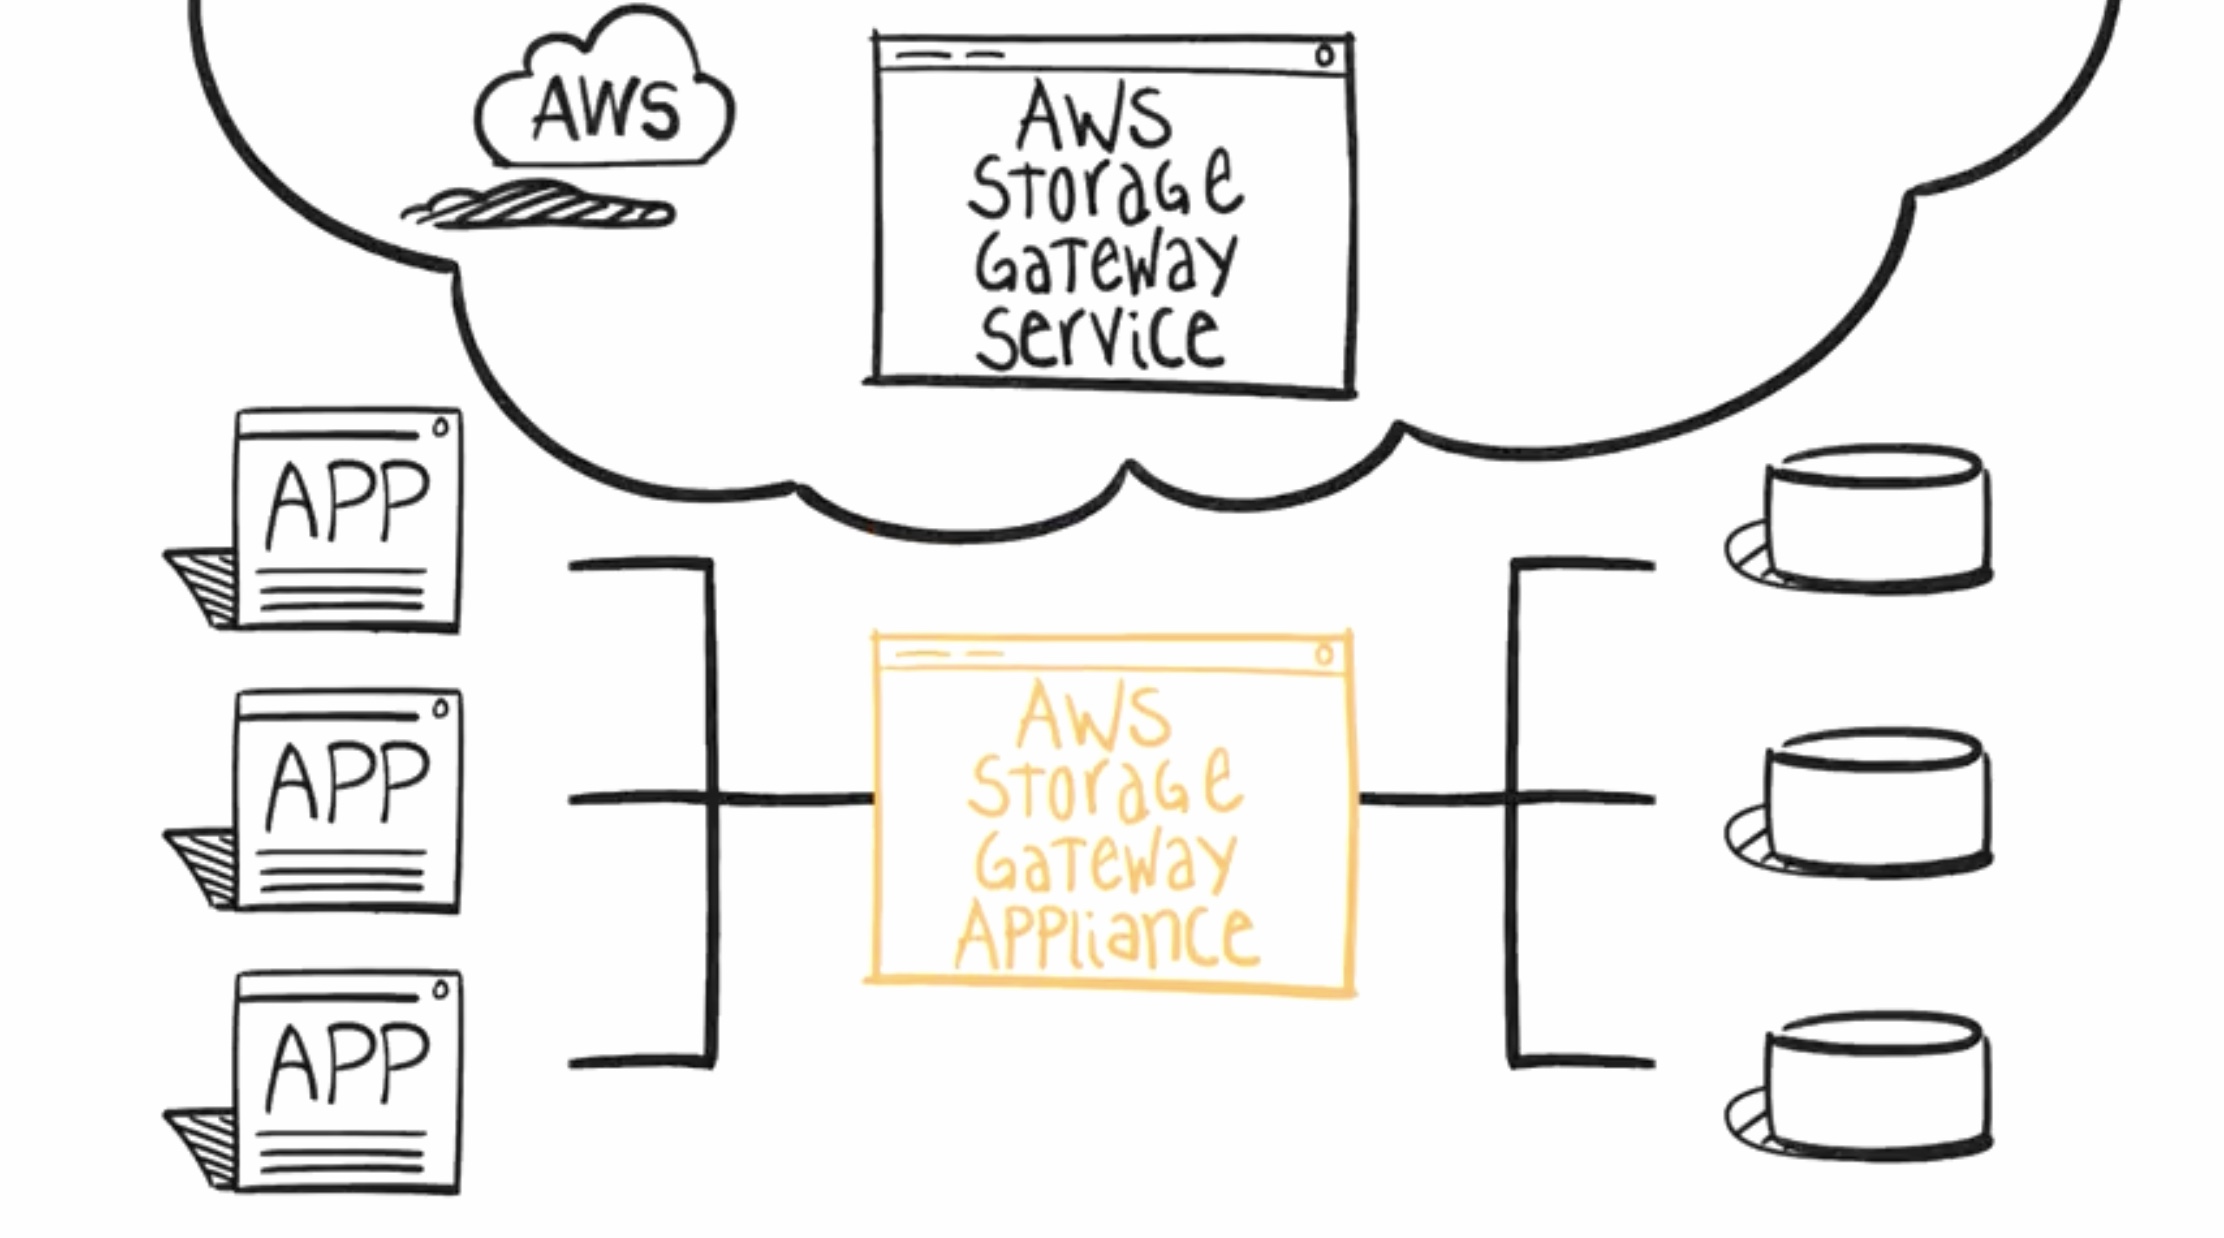 AWS
AWS
Storage
Gateway
Service
APP
APP
APP
AWS
Storage
Gateway
Appliance